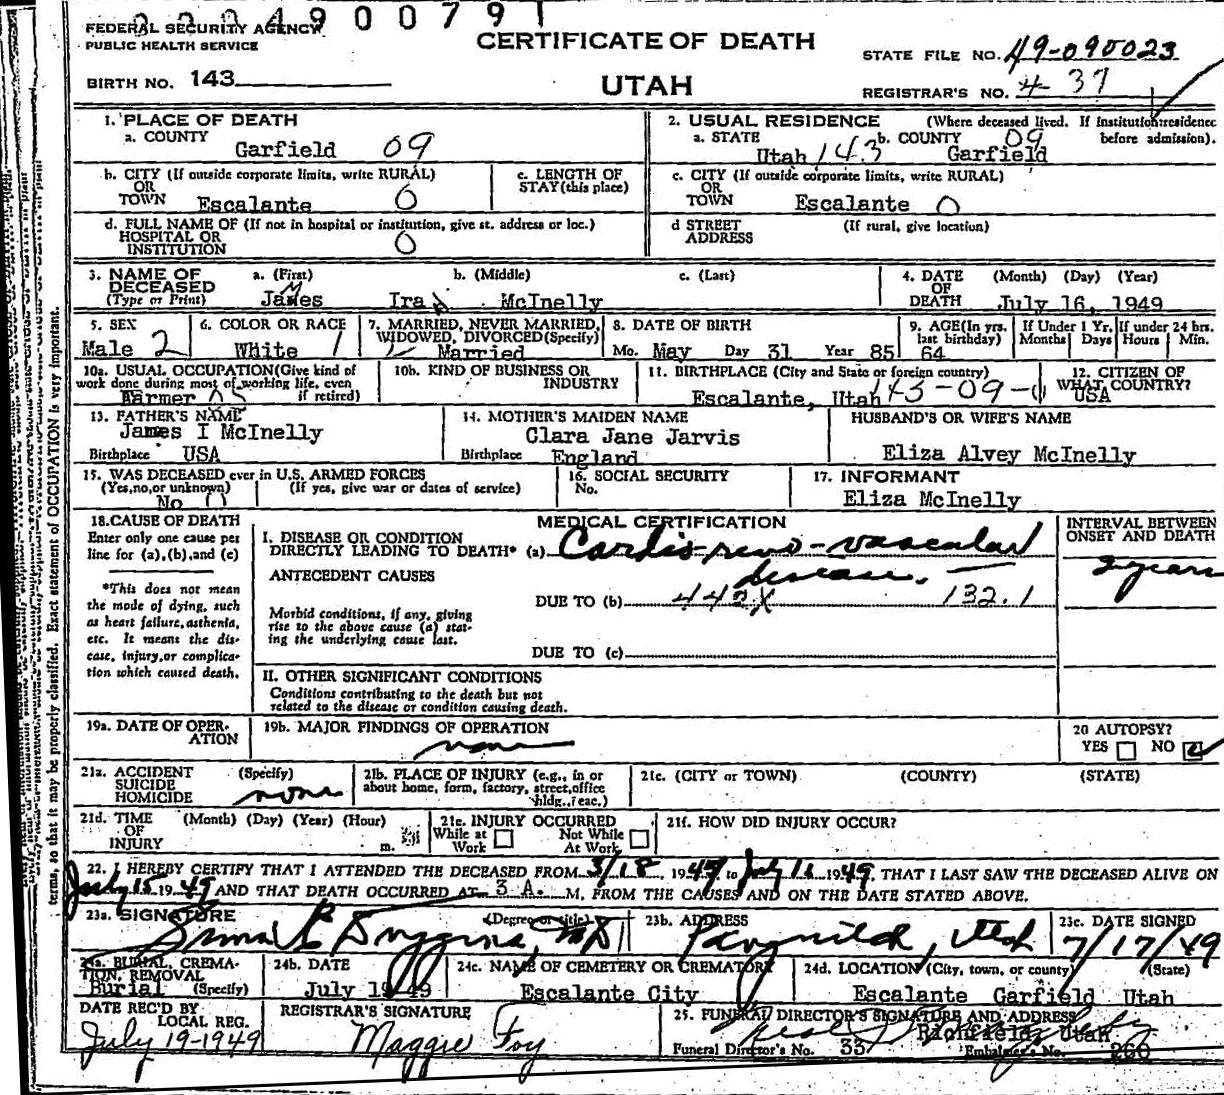 2 2 0 4 9 0 0 7 9 1
FEDERAL SECURITY AGENCY
PUBLIC HEALTH SERVICE
CERTIFICATE OF DEATH
STATE FILE NO. 49-090023
BIRTH NO. 143
UTAH
REGISTRAR'S NO. 4-37
1. PLACE OF DEATH
a. COUNTY
Garfield 09
2. USUAL RESIDENCE (Where deceased lived. If institution: residence before admission).
a. STATE b. COUNTY 09
Utah 143 Garfield
b. CITY (If outside corporate limits, write RURAL)
OR
TOWN Escalante 0
c. LENGTH OF
STAY (this place)
c. CITY (If outside corporate limits, write RURAL)
OR
TOWN Escalante 0
d. FULL NAME OF (If not in hospital or institution, give st. address or loc.)
HOSPITAL OR
INSTITUTION 0
d STREET (If rural, give location)
ADDRESS
3. NAME OF DECEASED
(Type or Print)
a. (First) b. (Middle) c. (Last)
James Ira McInelly
4. DATE OF DEATH (Month) (Day) (Year)
July 16, 1949
5. SEX
Male 2
6. COLOR OR RACE
White 1
7. MARRIED, NEVER MARRIED,
WIDOWED, DIVORCED (Specify)
Married
8. DATE OF BIRTH
Mo. May Day 31 Year 85
9. AGE (In yrs. last birthday)
64
If Under 1 Yr. Months Days
If under 24 hrs. Hours Min.
10a. USUAL OCCUPATION (Give kind of
work done during most of working life, even
if retired)
Farmer
10b. KIND OF BUSINESS OR
INDUSTRY
11. BIRTHPLACE (City and State or foreign country)
Escalante, Utah 143-09-0
12. CITIZEN OF
WHAT COUNTRY?
USA
13. FATHER'S NAME
James I McInelly
Birthplace USA
14. MOTHER'S MAIDEN NAME
Clara Jane Jarvis
Birthplace England
HUSBAND'S OR WIFE'S NAME
Eliza Alvey McInelly
15. WAS DECEASED ever in U.S. ARMED FORCES
(Yes, no, or unknown) (If yes, give war or dates of service)
No 0
16. SOCIAL SECURITY
No.
17. INFORMANT
Eliza McInelly
18. CAUSE OF DEATH
Enter only one cause per
line for (a), (b), and (c)
*This does not mean
the mode of dying, such
as heart failure, asthenia,
etc. It means the dis-
ease, injury, or complica-
tion which caused death.
MEDICAL CERTIFICATION
I. DISEASE OR CONDITION
DIRECTLY LEADING TO DEATH* (a) Cardio-reno-vascular
disease.
ANTECEDENT CAUSES
DUE TO (b) 442X 132.1
Morbid conditions, if any, giving
rise to the above cause (a) stat-
ing the underlying cause last.
DUE TO (c)
II. OTHER SIGNIFICANT CONDITIONS
Conditions contributing to the death but not
related to the disease or condition causing death.
INTERVAL BETWEEN
ONSET AND DEATH
2 years
19a. DATE OF OPER-
ATION
19b. MAJOR FINDINGS OF OPERATION
none
20 AUTOPSY?
YES NO
21a. ACCIDENT (Specify)
SUICIDE
HOMICIDE none
21b. PLACE OF INJURY (e.g., in or
about home, form, factory, street, office
bldg., eac.)
21c. (CITY or TOWN) (COUNTY) (STATE)
21d. TIME (Month) (Day) (Year) (Hour)
OF
INJURY m.
21e. INJURY OCCURRED
While at Work Not While At Work
21f. HOW DID INJURY OCCUR?
22. I HEREBY CERTIFY THAT I ATTENDED THE DECEASED FROM 3/18, 1947 to July 16 1949, THAT I LAST SAW THE DECEASED ALIVE ON
July 15 1949 AND THAT DEATH OCCURRED AT 3 A. M. FROM THE CAUSES AND ON THE DATE STATED ABOVE.
23a. SIGNATURE (Degree or title)
Duggins, MD
23b. ADDRESS
Panguitch, Utah
23c. DATE SIGNED
7/17/49
24a. BURIAL, CREMA-
TION, REMOVAL
Burial (Specify)
24b. DATE
July 19 49
24c. NAME OF CEMETERY OR CREMATORY
Escalante City
24d. LOCATION (City, town, or county) (State)
Escalante Garfield Utah
DATE REC'D BY
LOCAL REG.
July 19-1949
REGISTRAR'S SIGNATURE
Maggie Foy
25. FUNERAL DIRECTOR'S SIGNATURE AND ADDRESS
Richfield, Utah
Funeral Director's No. 33 Embalmer's No. 260
terms, so that it may be properly classified. Exact statement of OCCUPATION is very important.